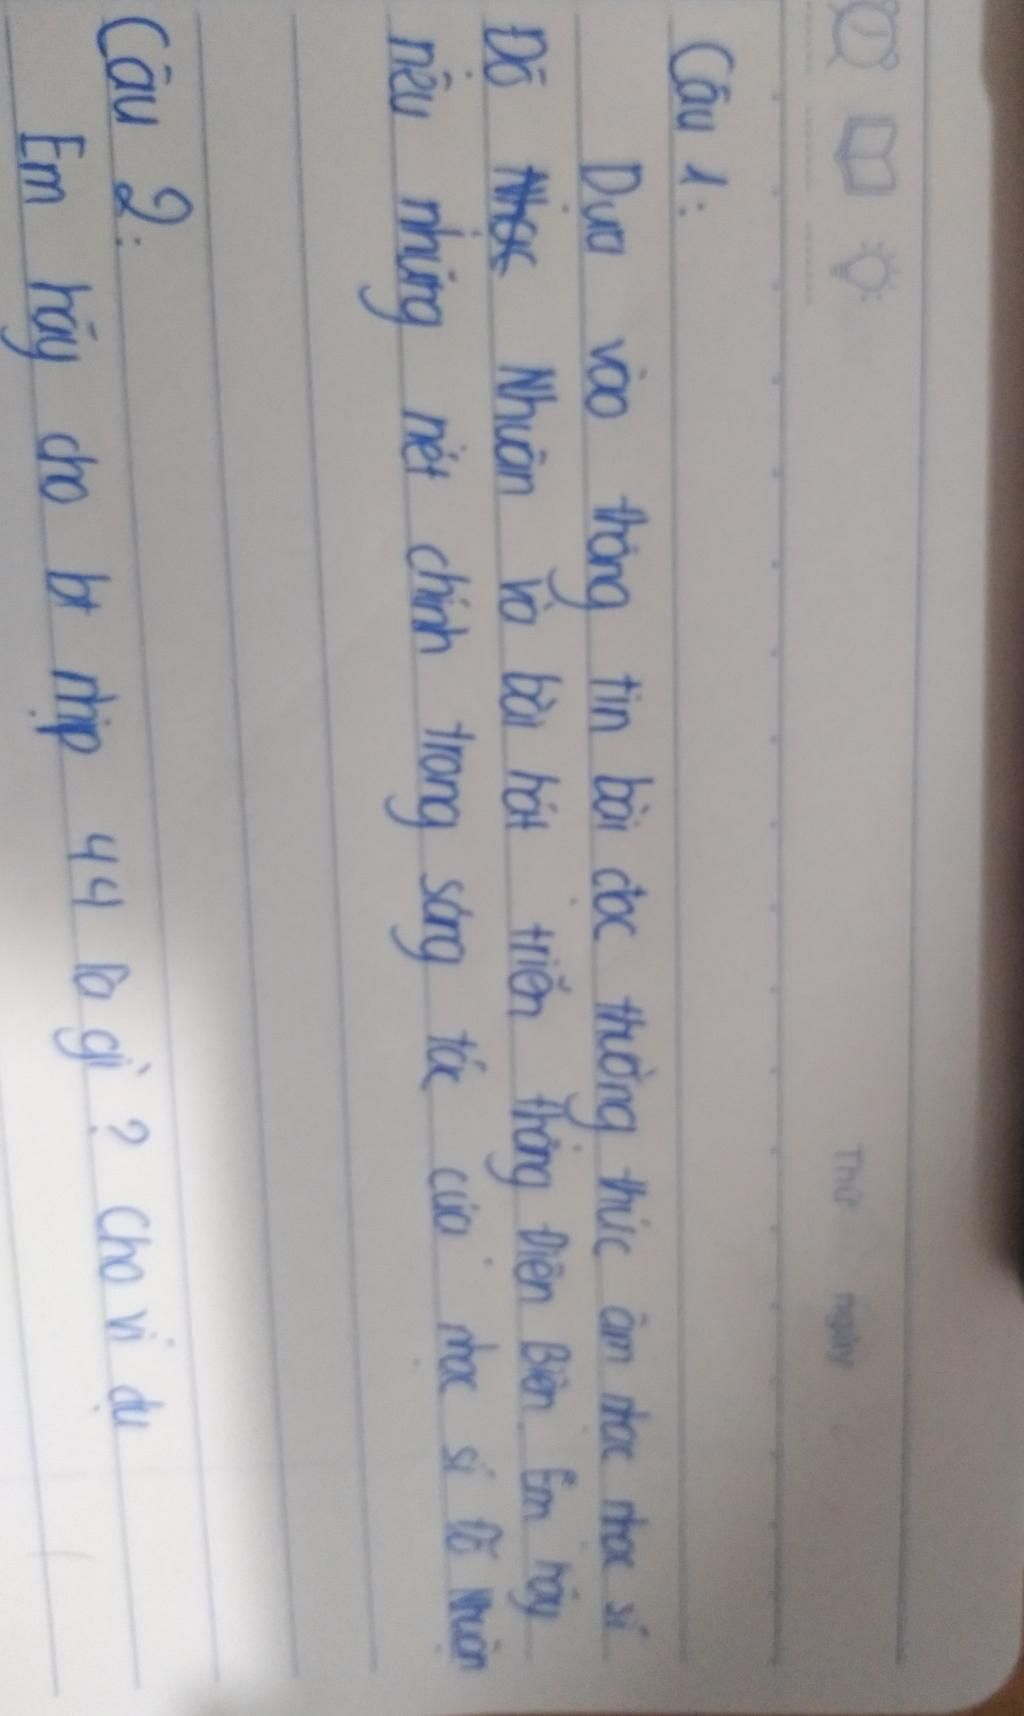 Thứ ngày
Câu 1:
Dựa vào thông tin bài đọc thường thức âm nhạc nhạc sĩ
Đỗ Nhuận và bài hát triến thắng Điện Biên. Em hãy
nêu những nét chính trong sáng tác của nhạc sĩ Đỗ Nhuận
Câu 2:
Em hãy cho bt nhịp 44 là gì? cho ví dụ